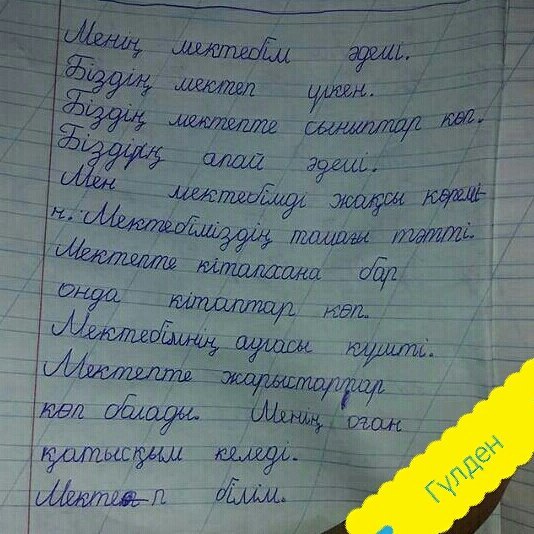 Менің мектебім әдемі.
Біздің мектеп үлкен.
Біздің мектепте сыныптар көп.
Біздің апай әдемі.
Мен мектебімді жақсы көремі-
н. Мектебіміздің тамағы тәтті.
Мектепте кітапхана бар
онда кітаптар көп.
Мектебімнің адғасы күшті.
Мектепте жарыстартар
көп болады. Менің оған
қатысқым келеді.
Мектеп білім.
Гүлден